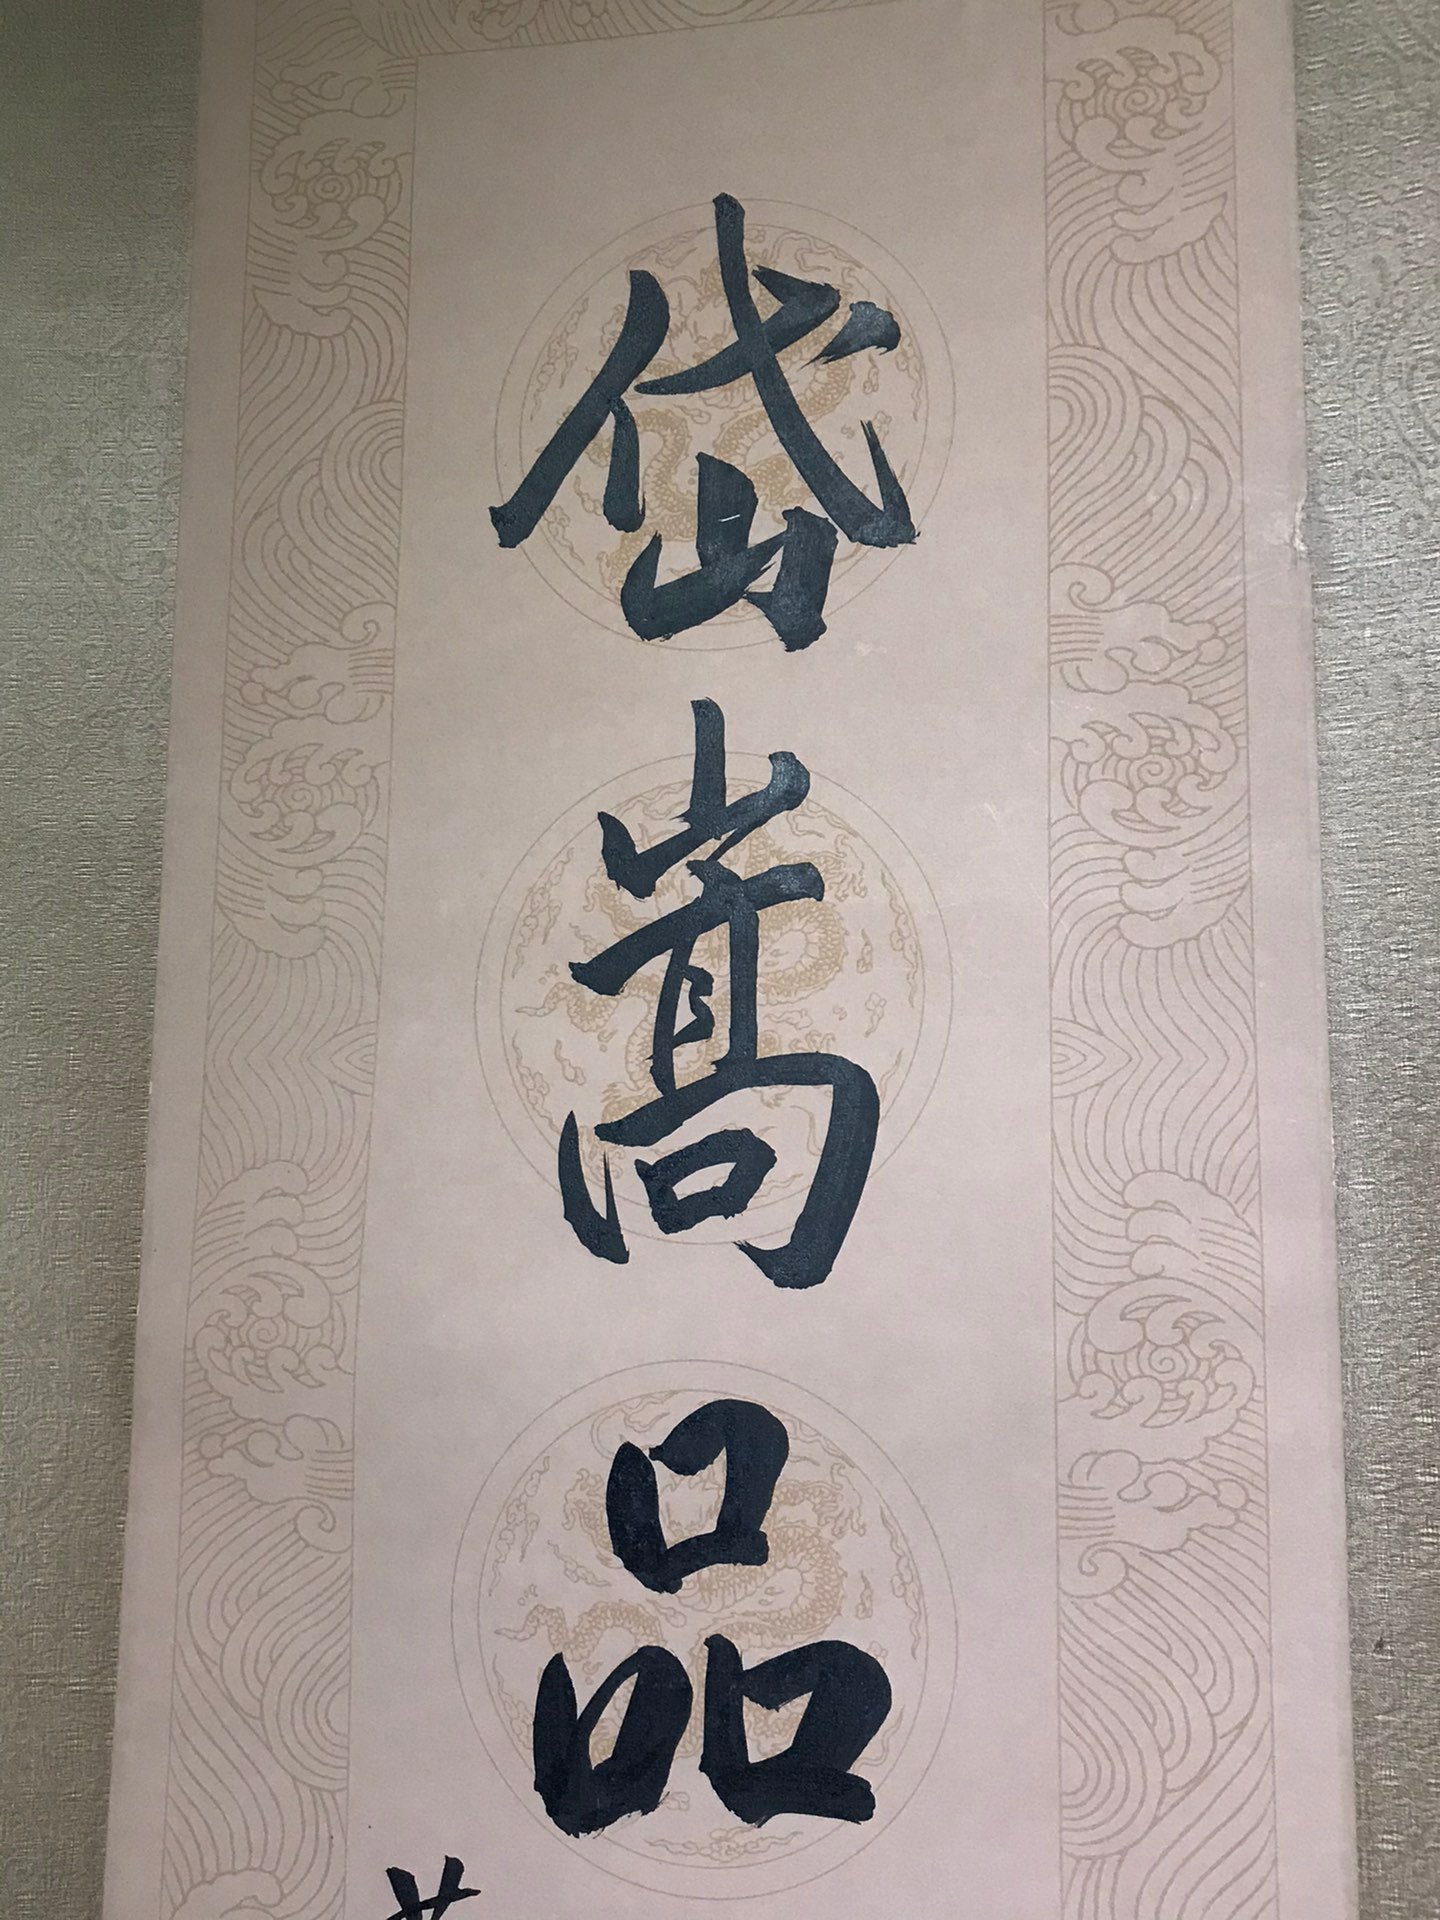 岱嵩品